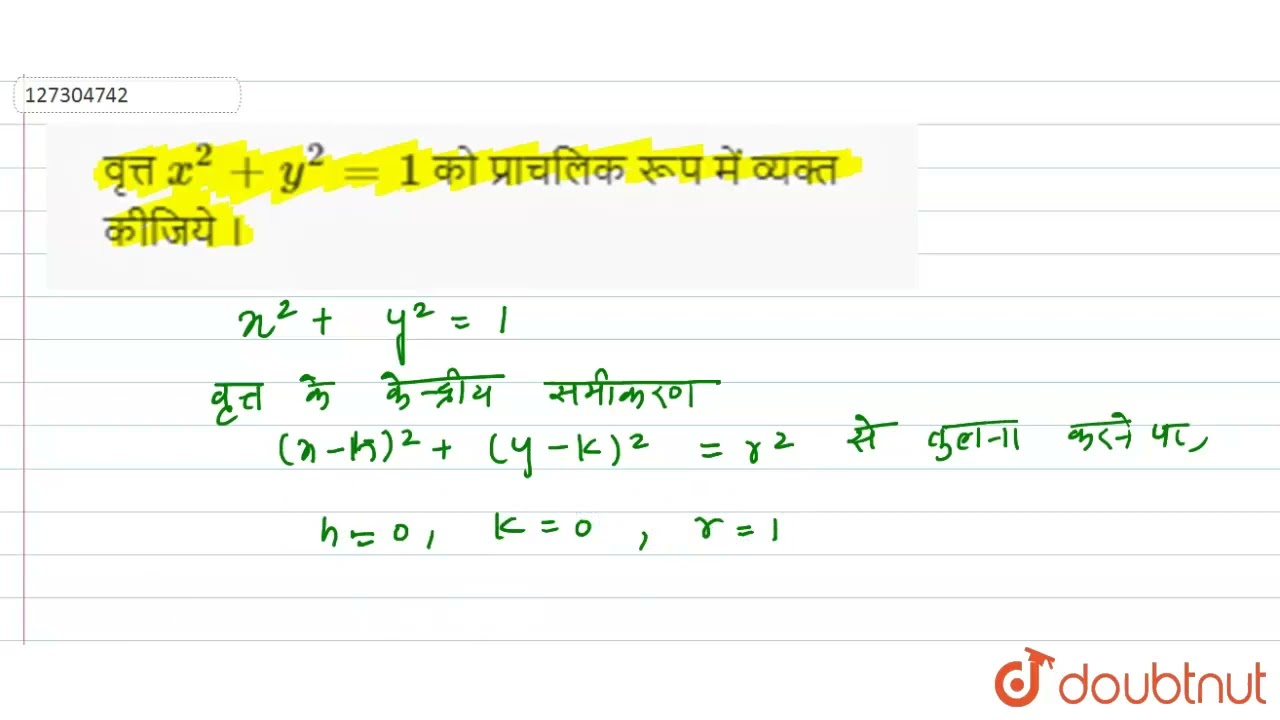 127304742
वृत्त x² + y² = 1 को प्राचलिक रूप में व्यक्त
कीजिये ।
x² + y² = 1
वृत्त के केन्द्रीय समीकरण
(x-h)² + (y-k)² = r² से तुलना करने पर,
h = 0, k = 0, r = 1
doubtnut